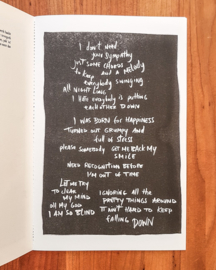 I don't need
your sympathy
just some
to keep and a melody
everybody swinging
All night long
I hate everybody is putting
each other down
I was born for happiness
turned out grumpy and
full of stress
please somebody get me back my
smile
need recognition before
I'm out of time
Let me try
to clear
my mind
oh my God
I am so blind
ignoring all the
pretty things around
it ain't hard to keep
falling down